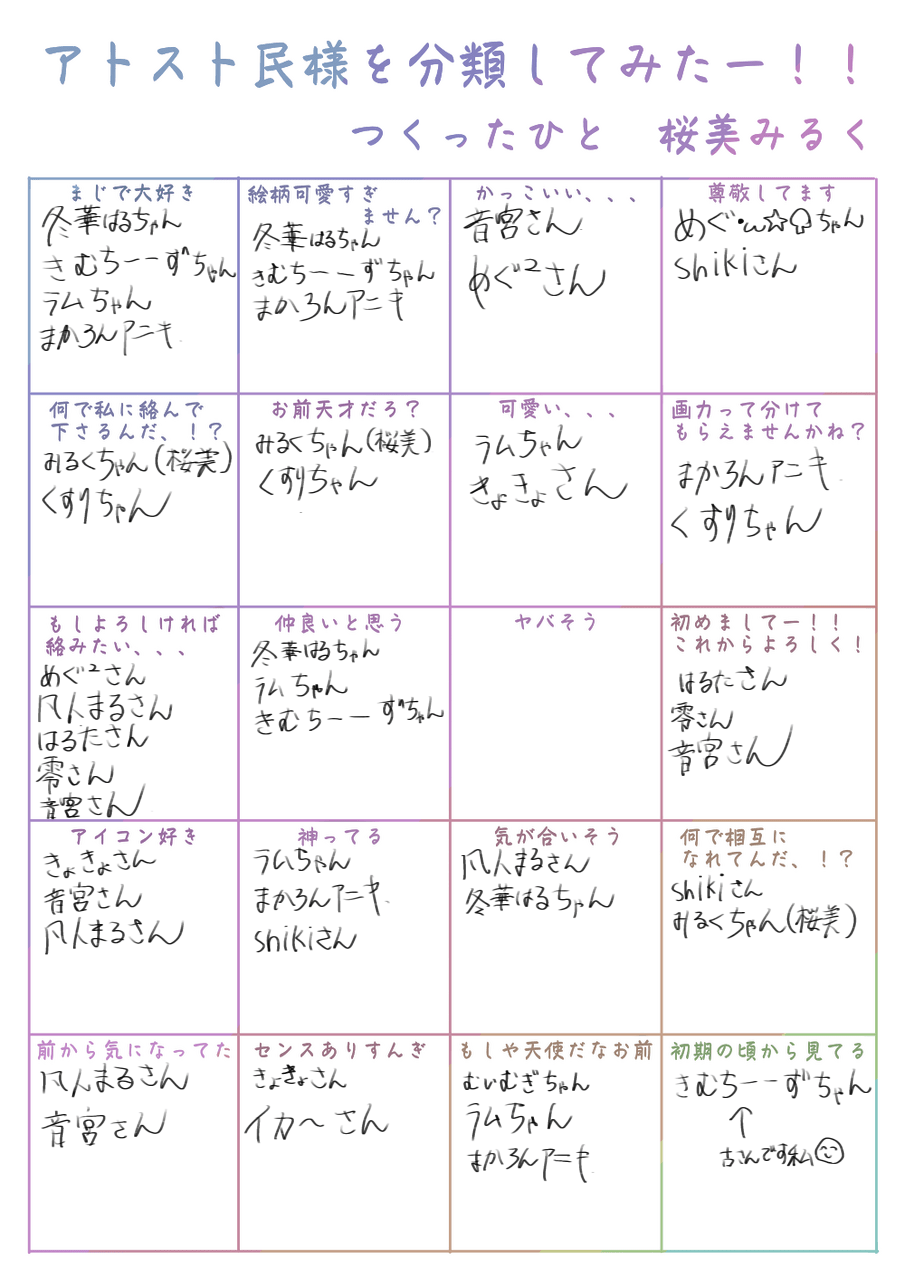 アトスト民様を分類してみたー！！
つくったひと　桜美みるく
まじで大好き
冬華はるちゃん
きむちーーずちゃん
ラムちゃん
まかろんアニキ
絵柄可愛すぎ
ません？
冬華はるちゃん
きむちーーずちゃん
まかろんアニキ
かっこいい、、、
音宮さん
めぐ²さん
尊敬してます
めぐ・ω☆Ω ちゃん
shikiさん
何で私に絡んで
下さるんだ、！？
みるくちゃん(桜美)
くすりちゃん
お前天才だろ？
みるくちゃん(桜美)
くすりちゃん
可愛い、、、
ラムちゃん
きょきょさん
画力って分けて
もらえませんかね？
まかろんアニキ
くすりちゃん
もしよろしければ
絡みたい、、、
めぐ²さん
凡人まるさん
はるたさん
零さん
音宮さん
仲良いと思う
冬華はるちゃん
ラムちゃん
きむちーーずちゃん
ヤバそう
初めましてー！！
これからよろしく！
はるたさん
零さん
音宮さん
アイコン好き
きょきょさん
音宮さん
凡人まるさん
神ってる
ラムちゃん
まかろんアニキ
shikiさん
気が合いそう
凡人まるさん
冬華はるちゃん
何で相互に
なれてんだ、！？
shikiさん
みるくちゃん(桜美)
前から気になってた
凡人まるさん
音宮さん
センスありすんぎ
きょきょさん
イカ〜さん
もしや天使だなお前
むいむぎちゃん
ラムちゃん
まかろんアニキ
初期の頃から見てる
きむちーーずちゃん
↑
古さんです私